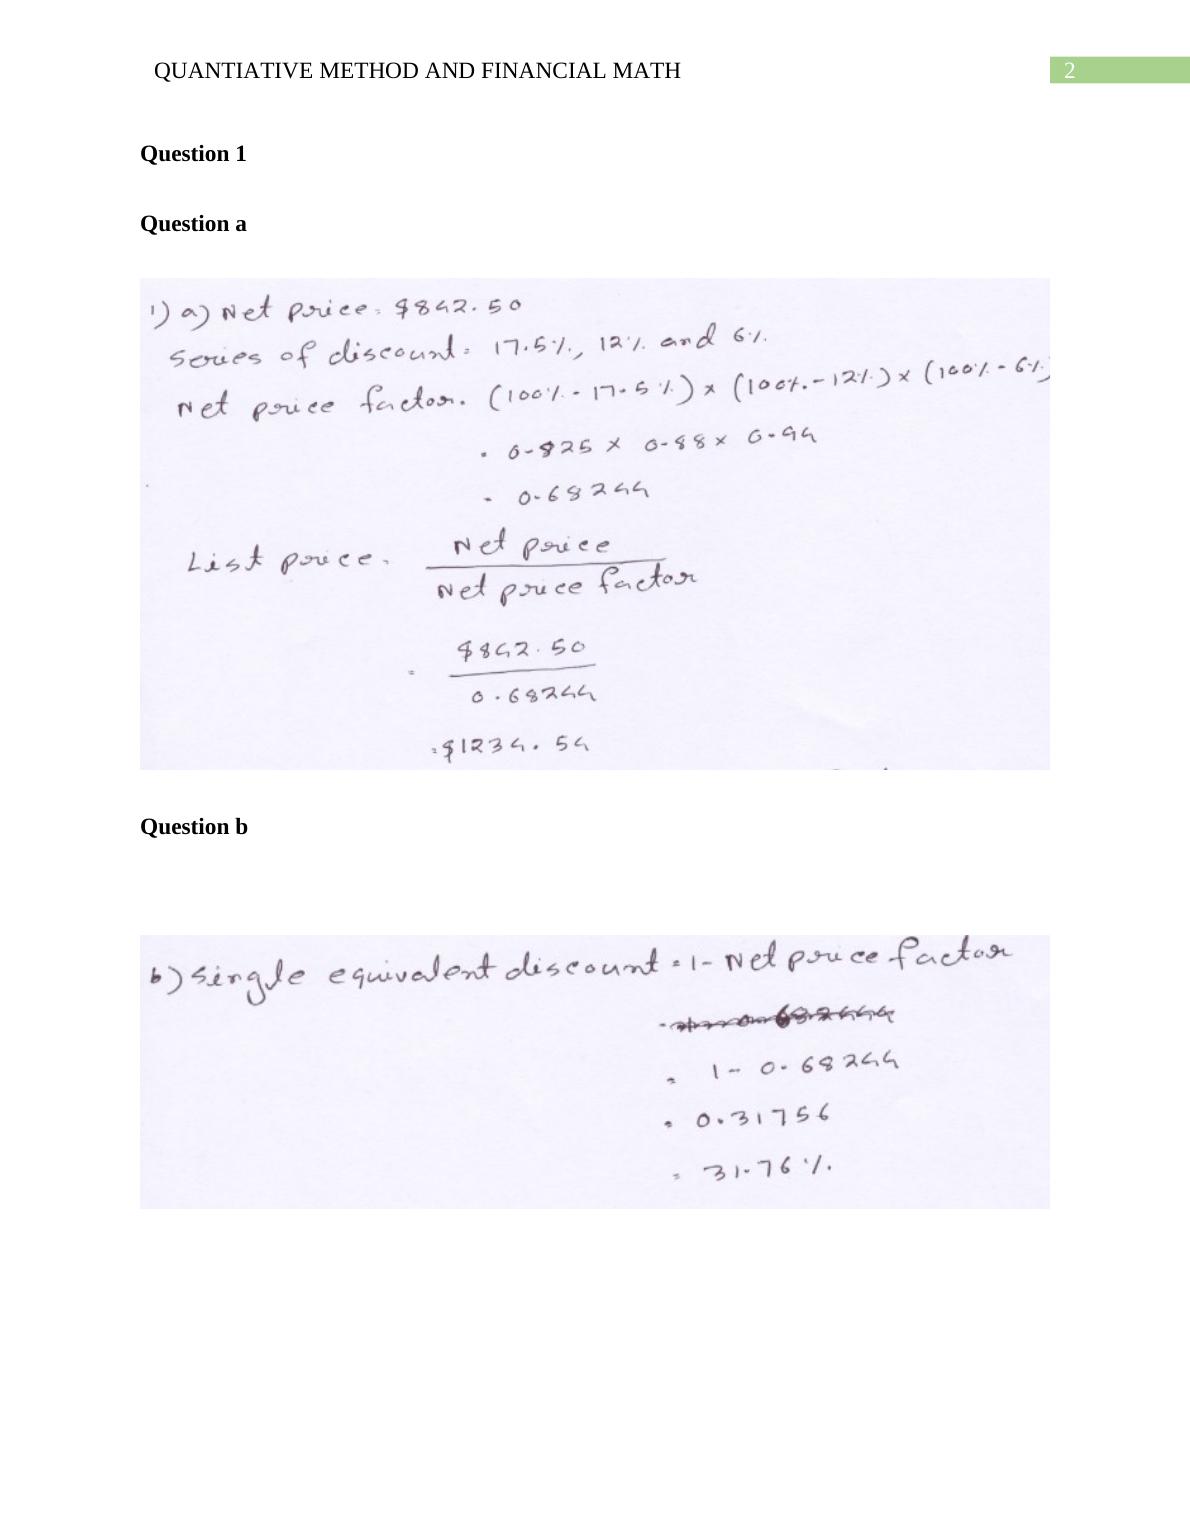 QUANTIATIVE METHOD AND FINANCIAL MATH 2
Question 1
Question a
1) a) Net price = $842.50
Series of discount = 17.5%, 12% and 6%.
Net price factor = (100% - 17.5%) × (100% - 12%) × (100% - 6%)
= 0.825 × 0.88 × 0.94
= 0.68244
List price = Net price
Net price factor
= $842.50
0.68244
= $1234.54
Question b
b) Single equivalent discount = 1 - Net price factor
= 1 - 0.68244
= 0.31756
= 31.76%.